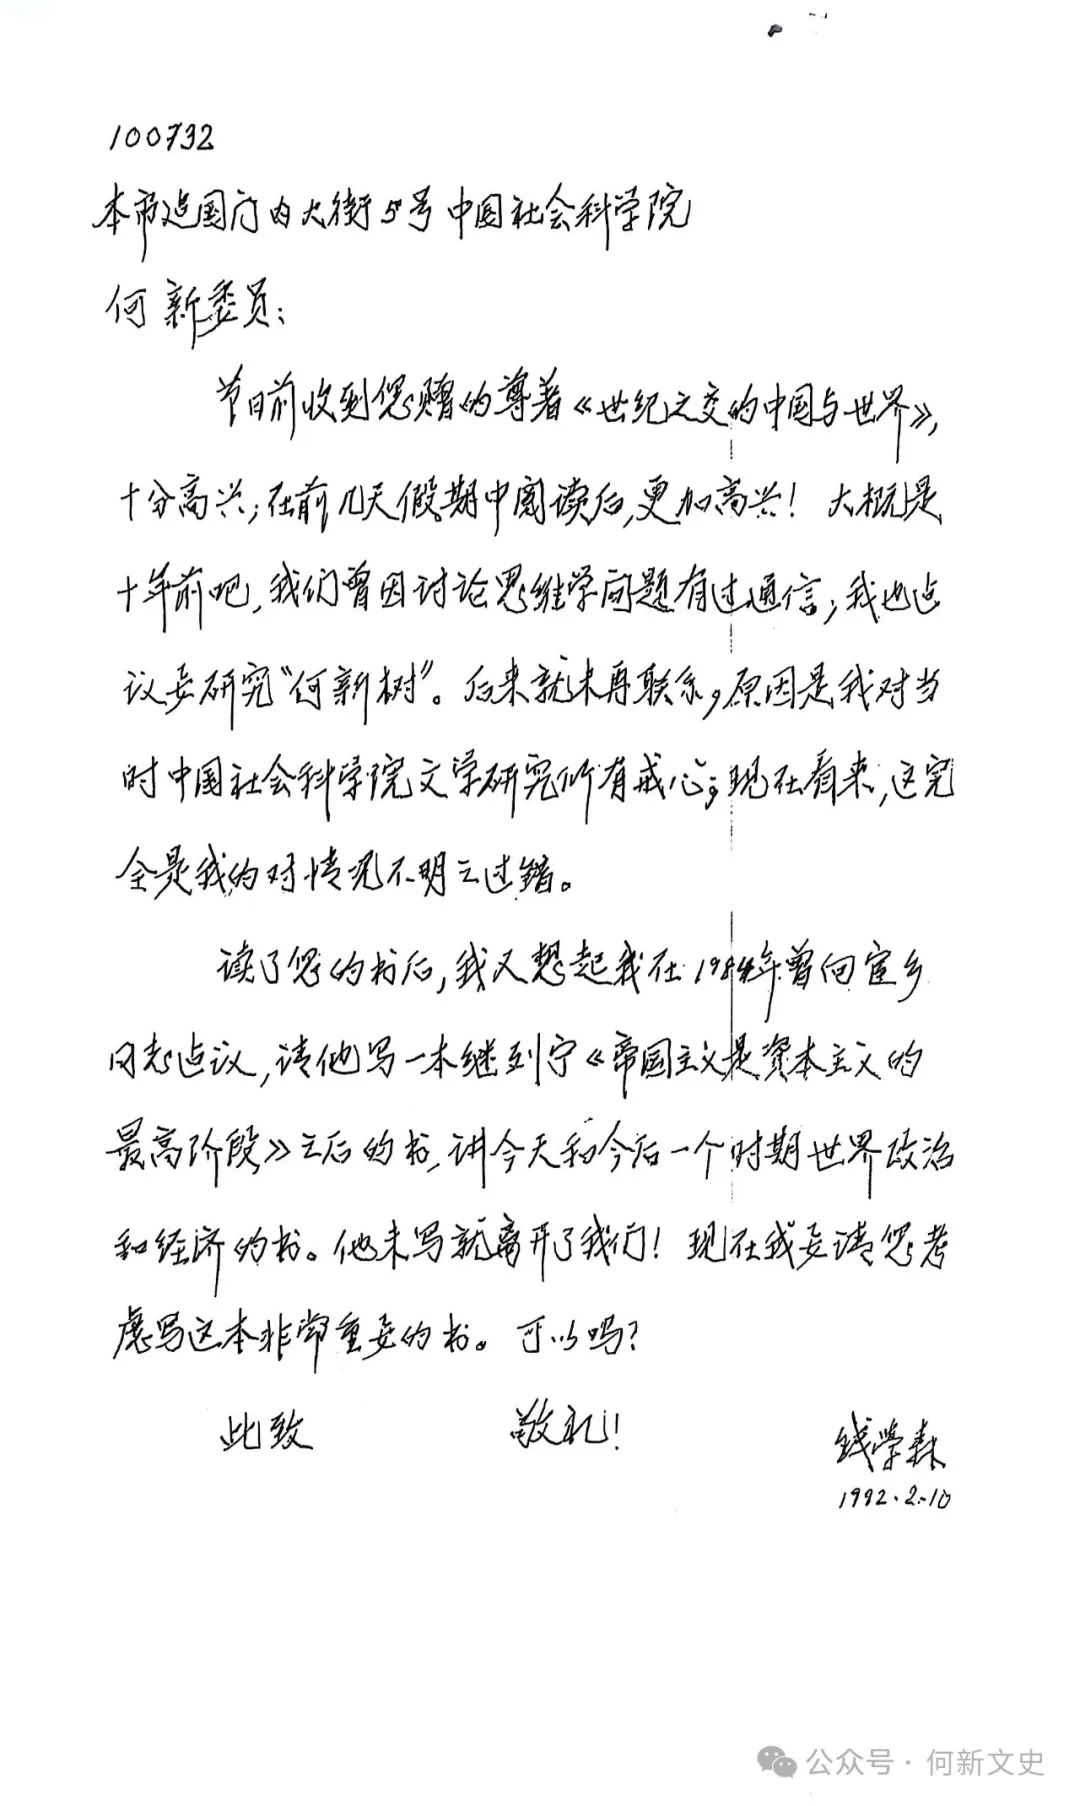 100732
本市建国门内大街5号中国社会科学院
何新委员：
节日前收到您赠的尊著《世纪之交的中国与世界》，
十分高兴；在前几天假期中阅读后，更加高兴！大概是
十年前吧，我们曾因讨论思维学问题有过通信，我也建
议要研究“何新树”。后来就未再联系，原因是我对当
时中国社会科学院文学研究所有戒心；现在看来，这完
全是我的对情况不明之过错。
读了您的书后，我又想起我在1984年曾向宦乡
同志建议，请他写一本继列宁《帝国主义是资本主义的
最高阶段》之后的书，讲今天和今后一个时期世界政治
和经济的书。他未写就离开了我们！现在我要请您考
虑写这本非常重要的书。可以吗？
此致 敬礼！
钱学森
1992.2.10
公众号·何新文史